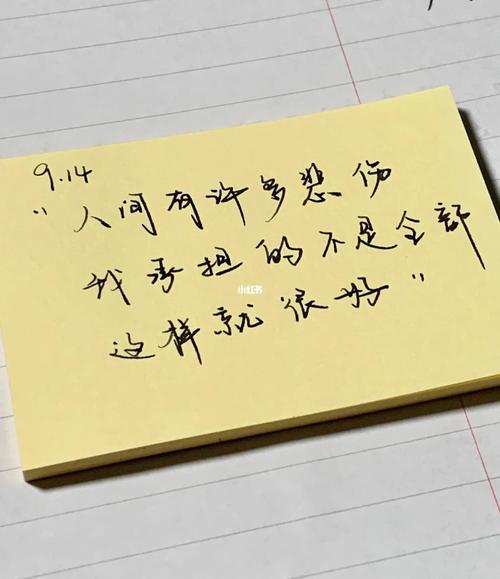 9.14
"人间有许多悲伤
我承担的不是全部
这样就很好"
小红书